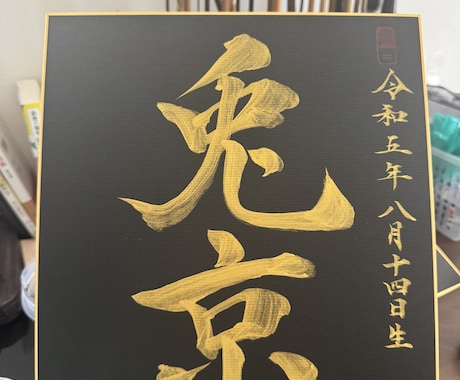 令和五年 八月十四日生
兎京